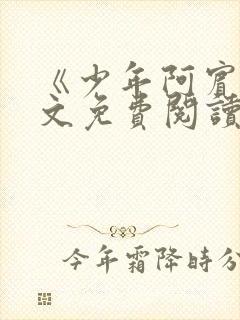 《少年阿賓
文免費閱讀
今年霜降時分